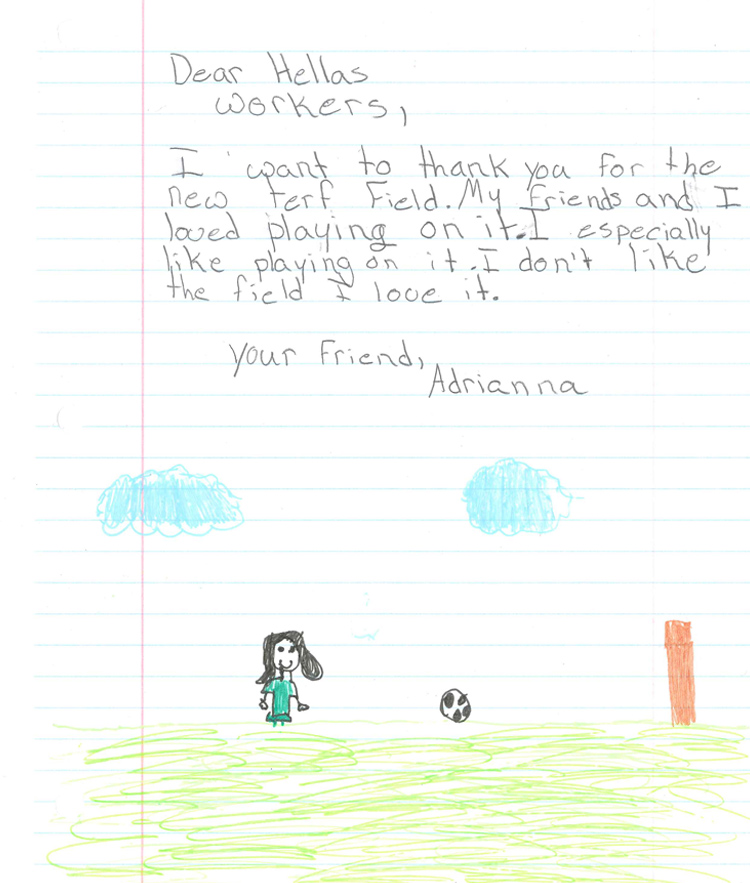 Dear Hellas
workers,
I want to thank you for the
new terf Field. My friends and I
loved playing on it. I especially
like playing on it. I don't like
the field I love it.
your Friend,
Adrianna